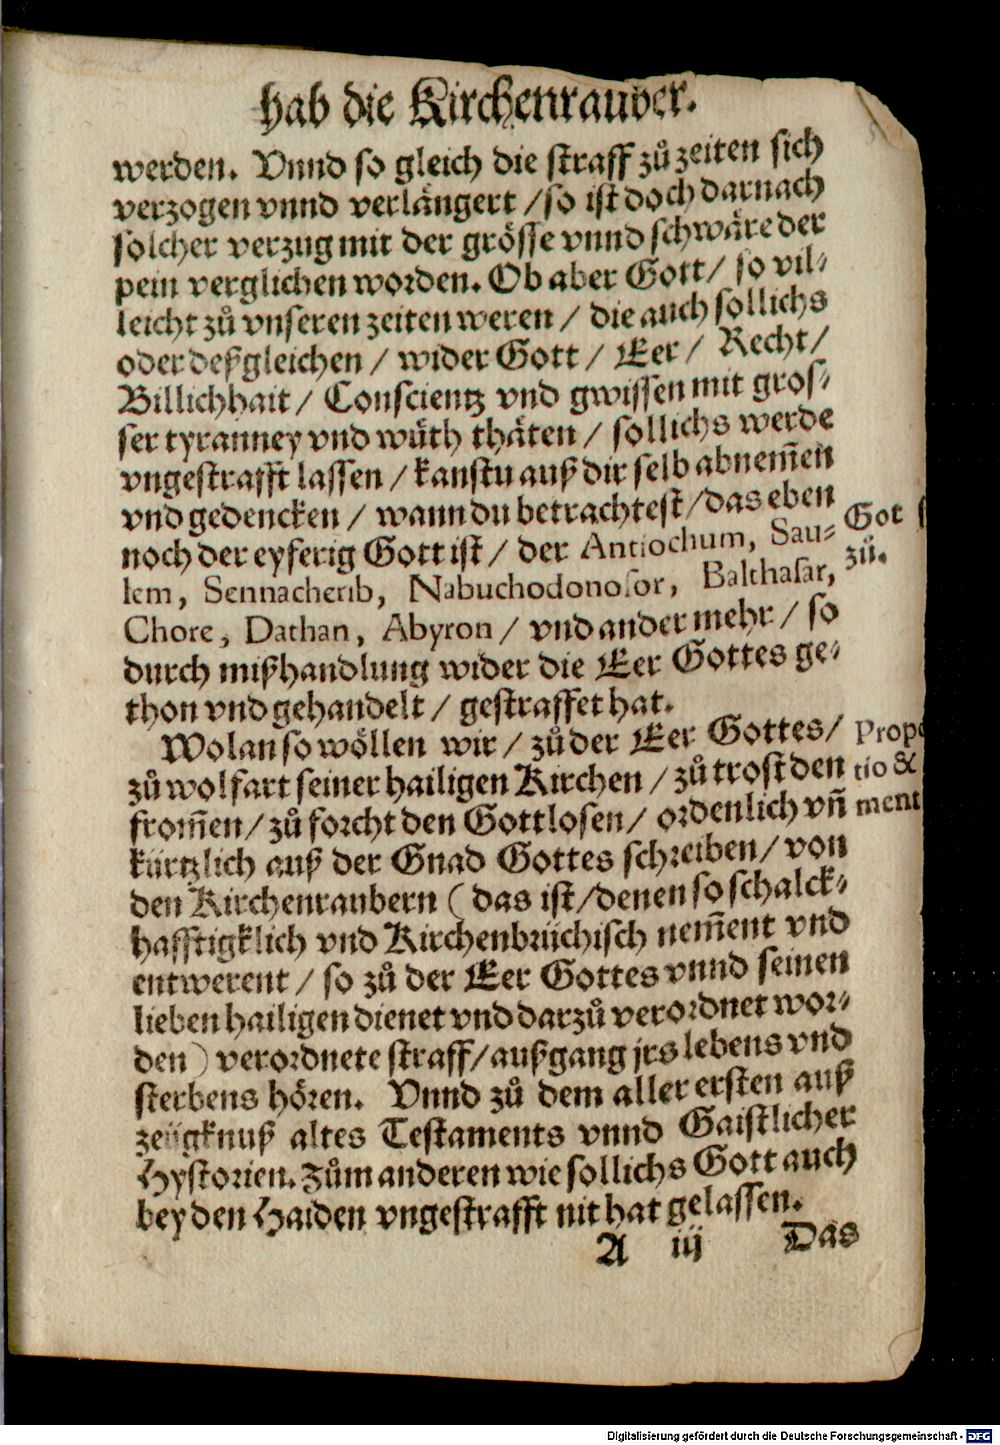 hab die Kirchenrauber.
werden. Vnnd so gleich die straff zů zeiten sich
verzogen vnnd verlängert / so ist doch darnach
solcher verzug mit der grösse vnnd schwäre der
pein verglichen worden. Ob aber Gott / so vil-
leicht zů vnseren zeiten weren / die auch sollichs
oder deßgleichen / wider Gott / Eer / Recht /
Billichhait / Conscientz vnd gwissen mit gros-
ser tyranney vnd wůth thäten / sollichs werde
vngestrafft lassen / kanstu auß dir selb abnem̃en
vnd gedencken / wann du betrachtest / das eben
noch der eyferig Gott ist / der Antiochum, Sau-
lem, Sennacherib, Nabuchodonosor, Balthasar,
Chore, Dathan, Abyron / vnd ander mehr / so
durch mißhandlung wider die Eer Gottes ge-
thon vnd gehandelt / gestraffet hat.
Got
zů.
Wolan so wöllen wir / zů der Eer Gottes /
zů wolfart seiner hailigen Kirchen / zů trost den
from̃en / zů forcht den Gottlosen / ordenlich vñ
kürtzlich auß der Gnad Gottes schreiben / von
den Kirchenraubern ( das ist / denen so schalck-
hafftigklich vnd Kirchenbrüchisch nem̃ent vnd
entwerent / so zů der Eer Gottes vnnd seinen
lieben hailigen dienet vnd darzů verordnet wor-
den ) verordnete straff / außgang jrs lebens vnd
sterbens hören. Vnnd zů dem aller ersten auß
zeügknuß altes Testaments vnnd Gaistlicher
Hystorien. Zům anderen wie sollichs Gott auch
bey den Haiden vngestrafft nit hat gelassen.
Prop
tio &
ment
A iij Das
Digitalisierung gefördert durch die Deutsche Forschungsgemeinschaft - DFG